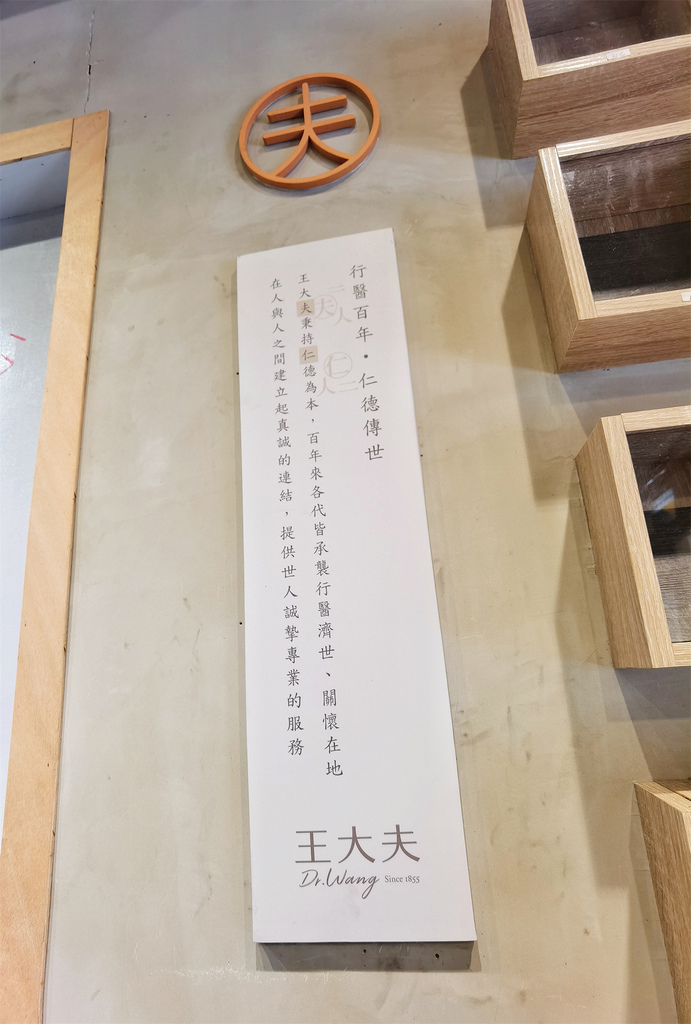 夫
行醫百年•仁德傳世
王大夫秉持仁德為本，百年來各代皆承襲行醫濟世、關懷在地
在人與人之間建立起真誠的連結，提供世人誠摯專業的服務
二
夫人
仁
人二
王大夫
Dr.Wang Since 1855